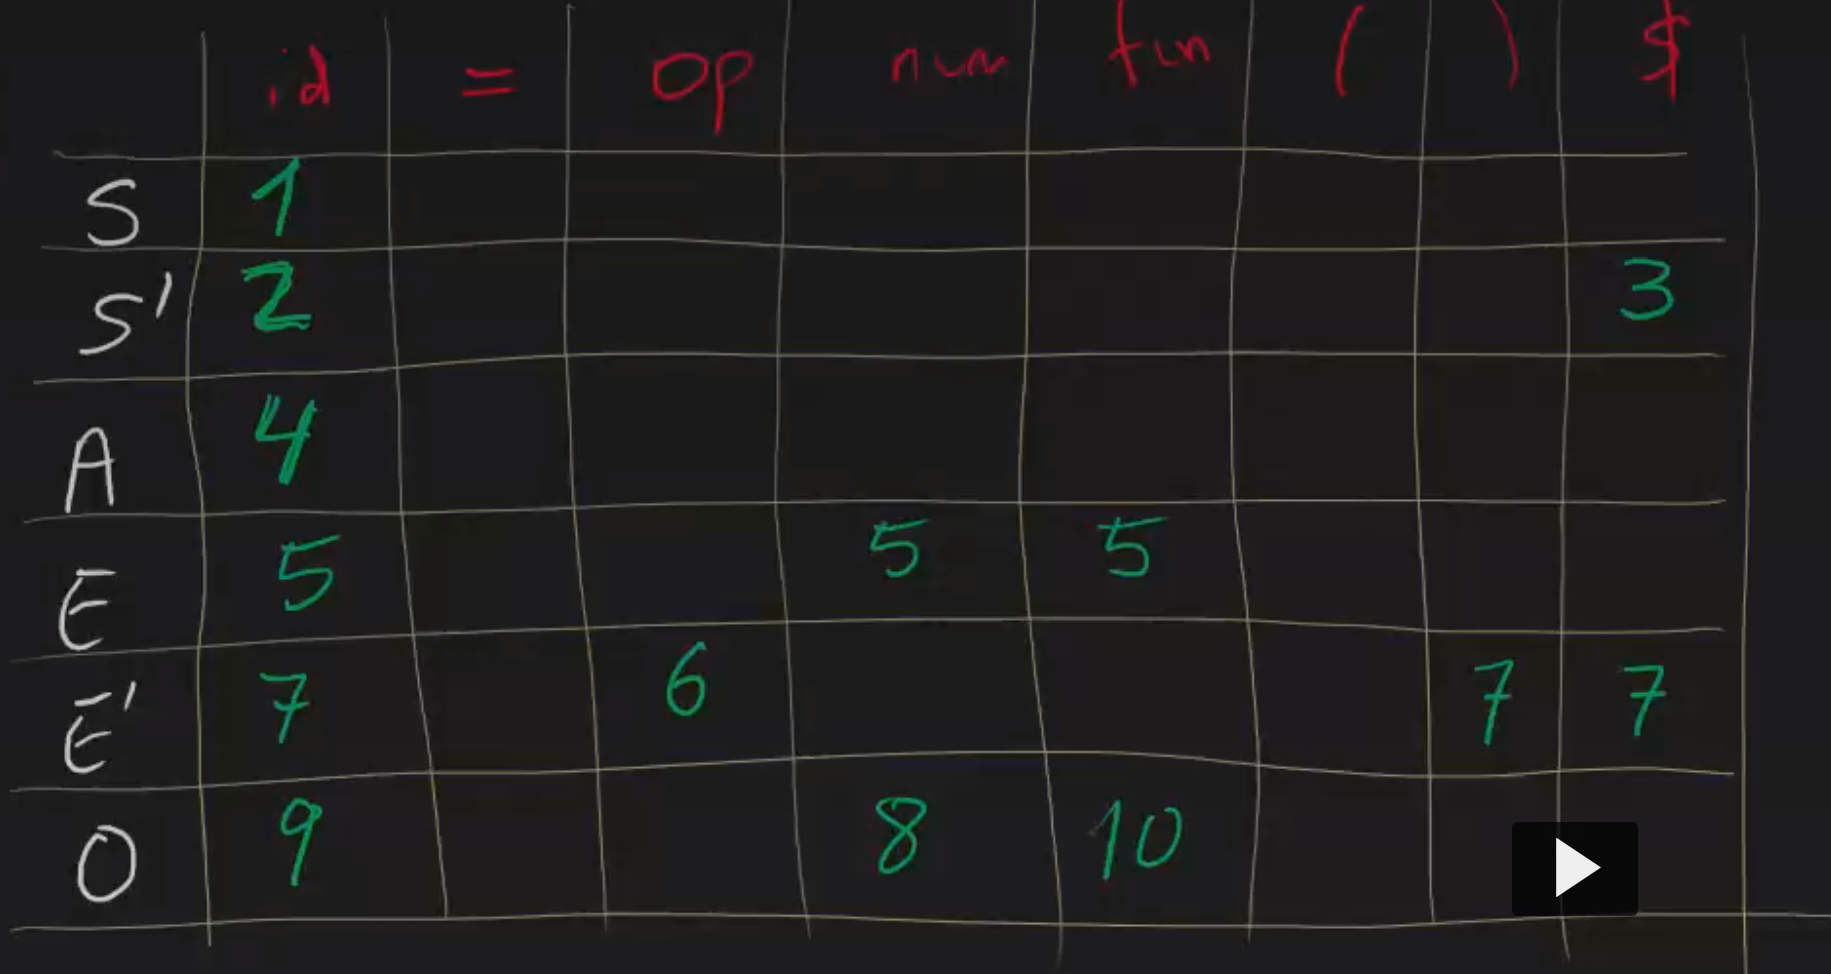 id = op num fun ( ) $
S 1
S' 2 3
A 4
E 5 5 5
E' 7 6 7 7
O 9 8 10